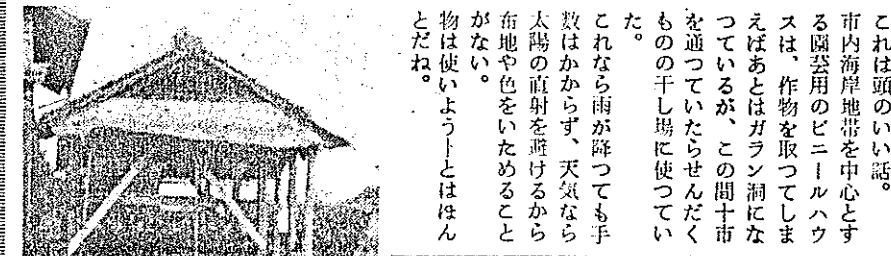 これは頭のいい話。
市内海岸地帯を中心とす
る園芸用のビニールハウ
スは、作物を取つてしま
えばあとはガラン洞にな
つているが、この間十市
を通つていたらせんだく
ものの干し場に使つてい
た。
これなら雨が降つても手
数はかからず、天気なら
太陽の直射を避けるから
布地や色をいためること
がない。
物は使いよう―とはほん
とだね。